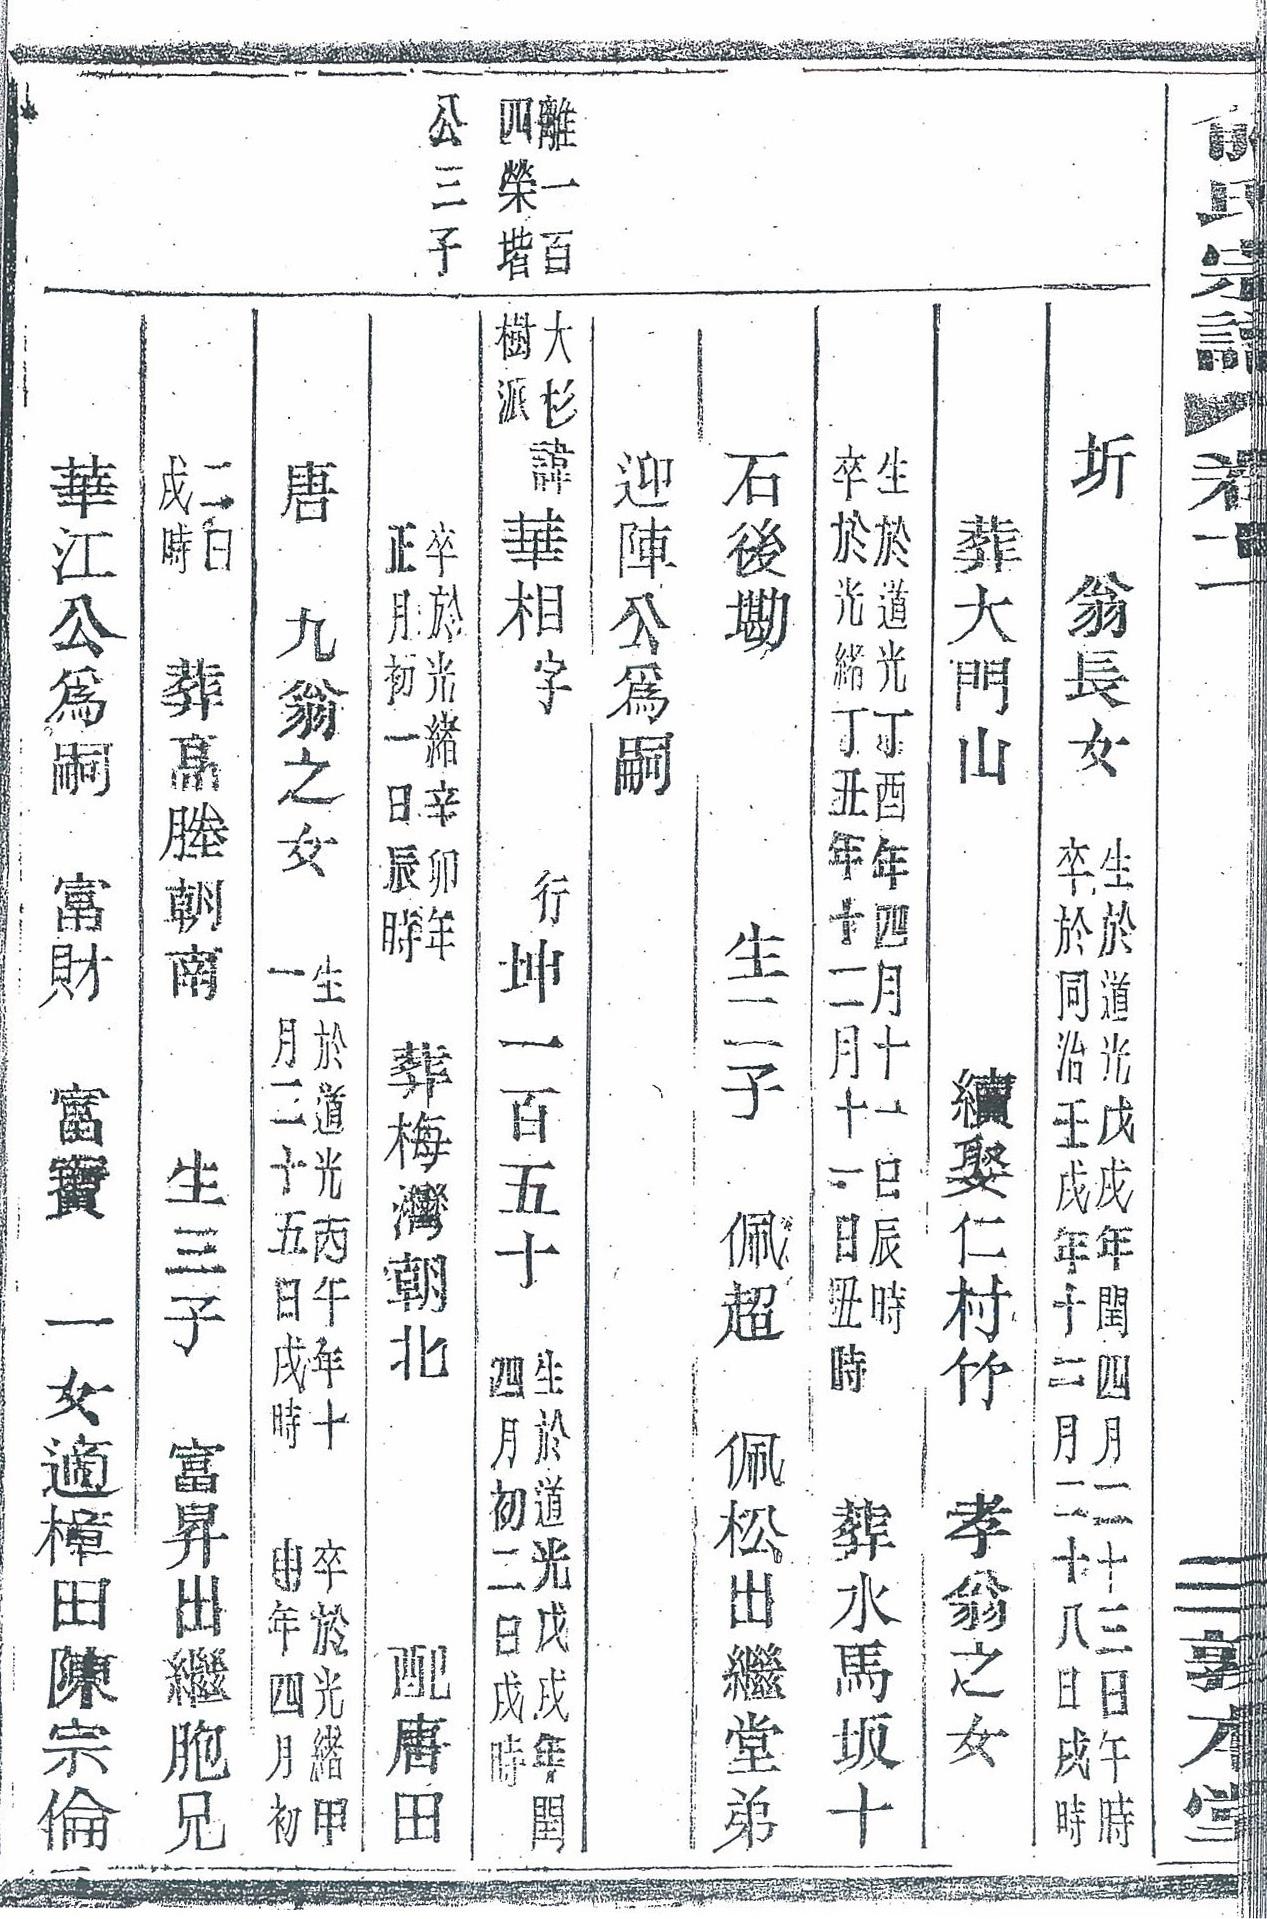 氏宗譜 卷十二 敦本堂
圻 翁長女 生於道光戊戌年閏四月二十三日午時
卒於同治壬戌年十二月二十八日戌時
葬大門山 續娶仁村竹 孝翁之女
生於道光丁酉年四月十一日辰時
卒於光緒丁丑年十二月十一日丑時 葬水馬坂十
石後墈 生二子 佩超 佩松出繼堂弟
迎陣公為嗣
離一百
四榮堦
公三子
大杉
樹派
諱華相字 行坤一百五十 生於道光戊戌年閏
四月初二日戌時
卒於光緒辛卯年
正月初一日辰時 葬梅灣朝北 配唐田
唐 九翁之女 生於道光丙午年十
一月二十五日戌時 卒於光緒甲
申年四月初
二日
戌時 葬高塍朝南 生三子 富昇出繼胞兄
華江公為嗣 富財 富寶 一女適樟田陳宗倫